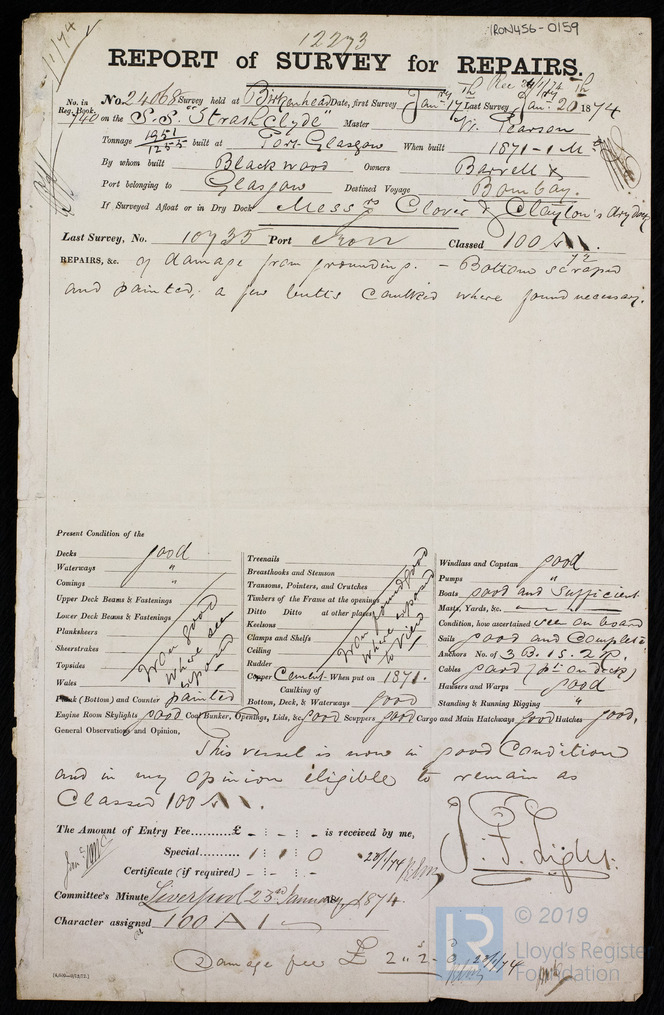 IRON456-0159
1/1/74
12273
REPORT of SURVEY for REPAIRS.
No. in Reg. Book. 740
No. 24068 Survey held at Birkenhead Date, first Survey Jan.ry 17th Last Survey Jan.ry 20th 1874
on the S.S. "Strath Clyde" Master W. Pearson
Tonnage 1951/1255 built at Port Glasgow When built 1871-1 Mo
By whom built Blackwood Owners Burrell &
Port belonging to Glasgow Destined Voyage Bombay.
If Surveyed Afloat or in Dry Dock Messrs Clover & Clayton's dry dock
Last Survey, No. 10735 Port Iron Classed 100 A1.
REPAIRS, &c. of damage from grounding. - Bottom scraped
and painted, a few butts caulked where found necessary.
Present Condition of the
Decks good
Waterways "
Comings "
Upper Deck Beams & Fastenings
Lower Deck Beams & Fastenings
Planksheers
Sheerstrakes
Topsides
Wales
Iron good where seen exposed
Plank (Bottom) and Counter painted
Treenails
Breasthooks and Stemson
Transoms, Pointers, and Crutches
Timbers of the Frame at the openings
Ditto Ditto at other places
Keelsons
Clamps and Shelfs
Ceiling
Rudder
Iron found good where exposed to view
Copper Cement - When put on 1871.
Caulking of
Bottom, Deck, & Waterways good
Windlass and Capstan good
Pumps "
Boats good and Sufficient
Masts, Yards, &c.
Condition, how ascertained see on board
Sails good and Complete
Anchors No. of 3 B. 1 S. 2 K.
Cables good (pt on deck)
Hausers and Warps good
Standing & Running Rigging "
Engine Room Skylights good Coal Bunker, Openings, Lids, &c. good Scuppers good Cargo and Main Hatchways good Hatches good.
General Observations and Opinion,
This vessel is now in good Condition
and in my opinion eligible to remain as
Classed 100 A1.
The Amount of Entry Fee..........£ - : - : - is received by me,
Special.......... 1 : 1 : 0
Certificate (if required) - : - : -
J. F. Light.
Committee's Minute Liverpool 23rd January 1874
Character assigned 100 A 1
Damage fee £ 2 " 2 - 0
© 2019
Lloyd's Register
Foundation